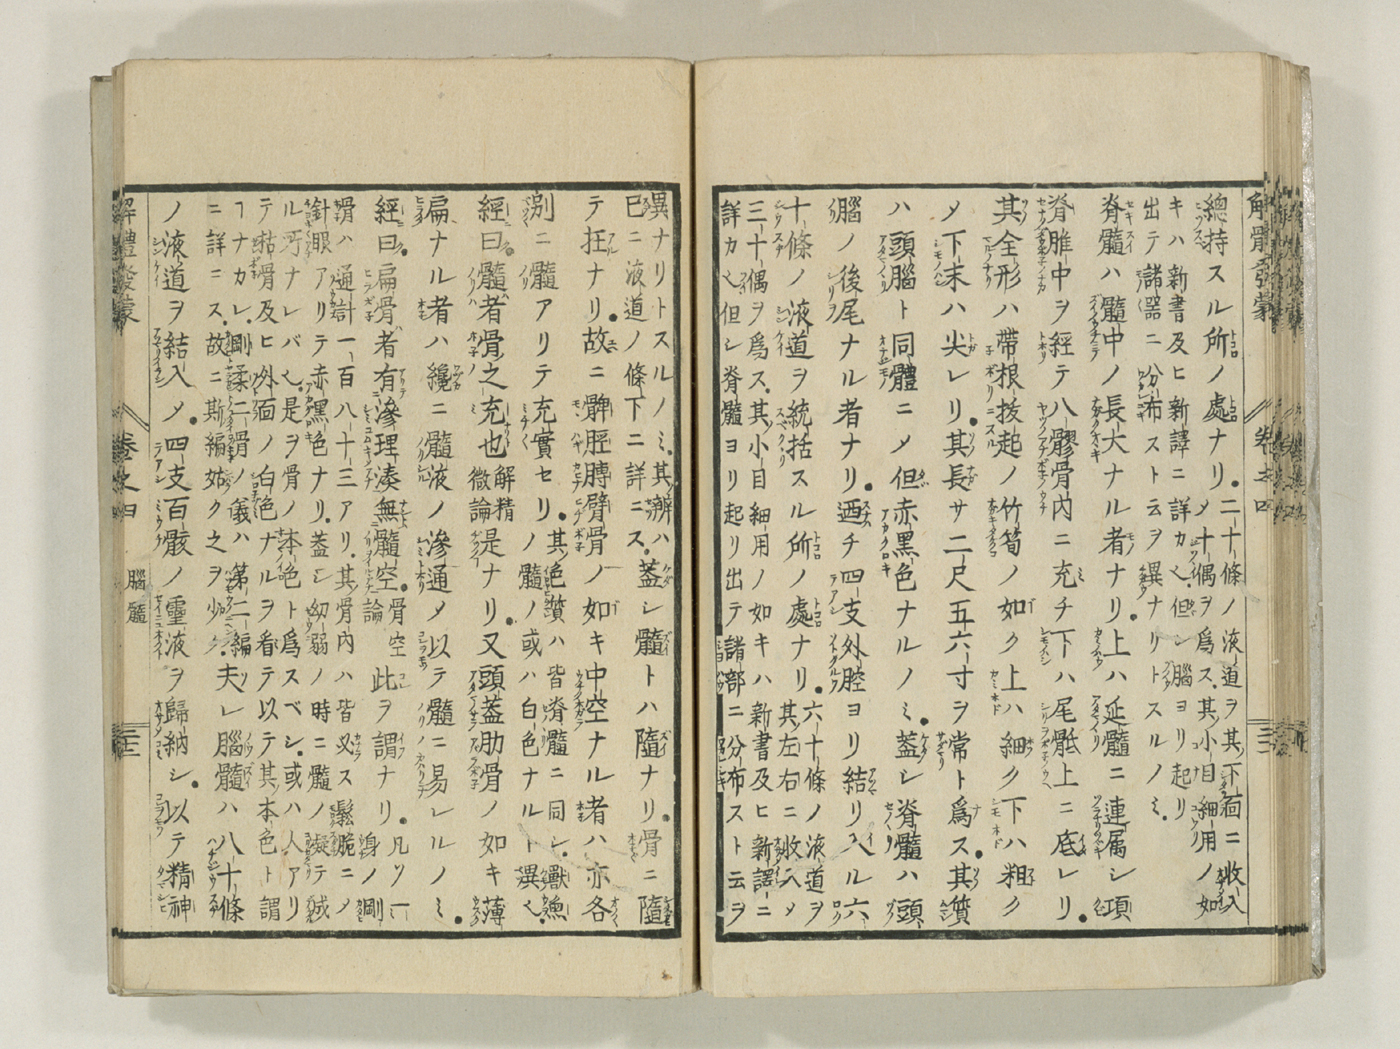 解體發蒙 卷之四
總持スル所ノ處ナリ。二十條ノ液道ヲ其下面ニ收入
シメ十偶ヲ爲ス。其小目細用ノ如
キハ新書及ヒ新譯ニ詳カ也。但シ腦ヨリ起リ
出テ諸器ニ分布スト云ヲ異ナリトスルノミ。
脊髓ハ髓中ノ長大ナル者ナリ。上ハ延髓ニ連属シ項
脊膗中ヲ經テ八髎骨内ニ充チ下ハ尾骶上ニ底レリ。
其全形ハ帶根拔起ノ竹筍ノ如ク上ハ細ク下ハ粗ク
〆下末ハ尖レリ。其長サ二尺五六寸ヲ常ト爲ス。其質
ハ頭腦ト同體ニ〆但赤黒色ナルノミ。蓋シ脊髓ハ頭
腦ノ後尾ナル者ナリ。廼チ四支外腔ヨリ結リ入ル六
十條ノ液道ヲ統括スル所ノ處ナリ。六十條ノ液道ヲ
其左右ニ收入〆
三十偶ヲ爲ス。其小目細用ノ如キハ新書及ヒ新譯ニ
詳カ也。但シ脊髓ヨリ起リ出テ諸部ニ分布スト云ヲ
異ナリトスルノミ。其辨ハ蓋シ髓トハ隨ナリ。骨ニ隨
已ニ液道ノ條下ニ詳ニス。
テ在ナリ。故ニ髀脛膊臂骨ノ如キ中空ナル者ハ亦各
別ニ髓アリテ充實セリ。其色質ハ皆脊髓ニ同シ。獸魚
ノ髓ノ或ハ白色ナルト異也。
經曰。髓者骨之充也 解精微論 是ナリ。又頭蓋肋骨ノ如キ薄
扁ナル者ハ纔ニ髓液ノ滲通〆以テ髓ニ易レルノミ。
經曰。扁骨者有滲理湊無髓空。骨空論 此ヲ謂ナリ。凡ソ一身ノ剛
滑ハ通計一百八十三アリ。其骨内ハ皆必ス鬆脆ニ〆
針眼アリテ赤黑色ナリ。蓋シ幼弱ノ時ニ髓ノ凝テ
ル所ナレバ也。是ヲ骨ノ本色ト爲スベシ。或ハ人アリ
テ枯骨及ヒ外面ノ白色ナルヲ看テ以テ其本色ト謂
ヿナカレ。剛柔二骨ノ儀ハ第二編
ニ詳ニス。故ニ斯編姑ク之ヲ少ク。夫レ腦髓ハ八十條
ノ液道ヲ結入〆。四支百骸ノ靈液ヲ歸納シ。以テ精神
解體發蒙 卷之四 腦髓